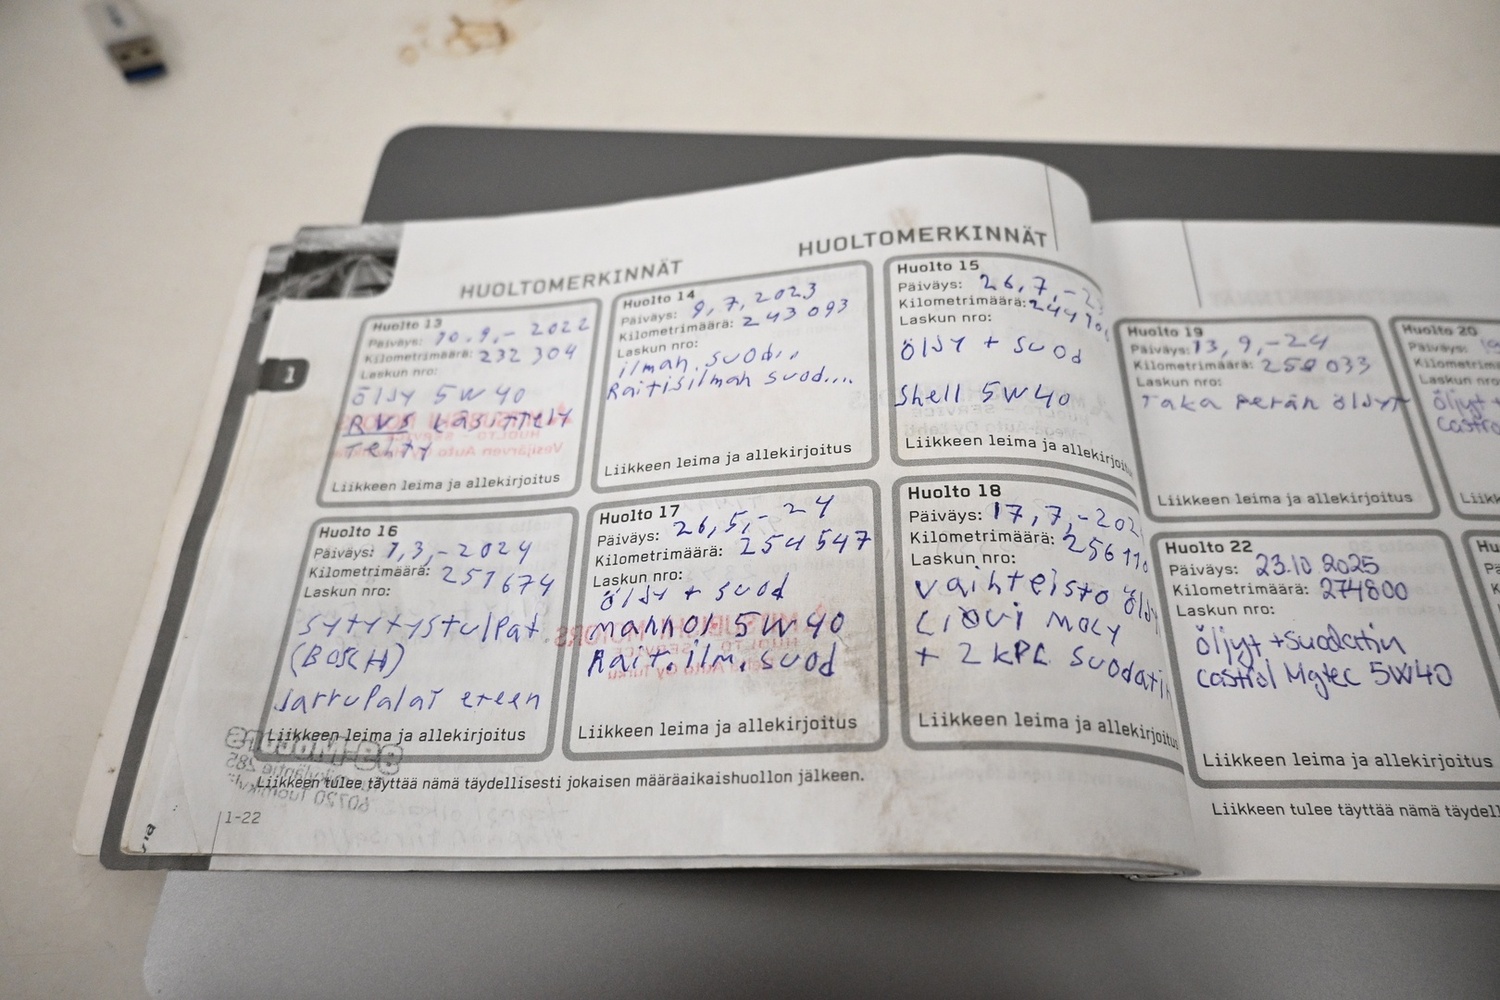 HUOLTOMERKINNÄT
HUOLTOMERKINNÄT
Huolto 13
Päiväys: 10.9,- 2022
Kilometrimäärä: 232 304
Laskun nro:
öljy 5W40
RVS käsittely
Tehty
Liikkeen leima ja allekirjoitus
Huolto 14
Päiväys: 9,7,2023
Kilometrimäärä: 243 093
Laskun nro:
ilman.suod..
Raitisilman suod....
Liikkeen leima ja allekirjoitus
Huolto 15
Päiväys: 26,7,-
Kilometrimäärä:
Laskun nro:
öljy + suod
Shell 5W40
Liikkeen leima ja allekirjoitus
Huolto 16
Päiväys: 1,3,-2024
Kilometrimäärä: 251674
Laskun nro:
sytytystulpat
(BOSCH)
Jarrupalat eteen
Liikkeen leima ja allekirjoitus
Huolto 17
Päiväys: 26,5,- 24
Kilometrimäärä: 254 547
Laskun nro:
öljy + suod
mannol 5W40
Rait.ilm.suod
Liikkeen leima ja allekirjoitus
Huolto 18
Päiväys: 17,7,-202
Kilometrimäärä:
Laskun nro:
vaihteisto
Liqvi Moly
+ 2 KPL suodatin
Liikkeen leima ja allekirjoitus
Liikkeen tulee täyttää nämä täydellisesti jokaisen määräaikaishuollon jälkeen.
1-22
1
Huolto 19
Päiväys: 13,9,-24
Kilometrimäärä:
Laskun nro:
Taka perän öljyt
Liikkeen leima ja allekirjoitus
Huolto 20
Päiväys:
Laskun nro
öljyt +
Castro
Huolto 22
Päiväys: 23.10.2025
Kilometrimäärä: 274800
Laskun nro:
öljyt +suodatin
castrol Mgtec 5W40
Liikkeen leima ja allekirjoitus
Liikkeen tulee täyttää nämä täydell